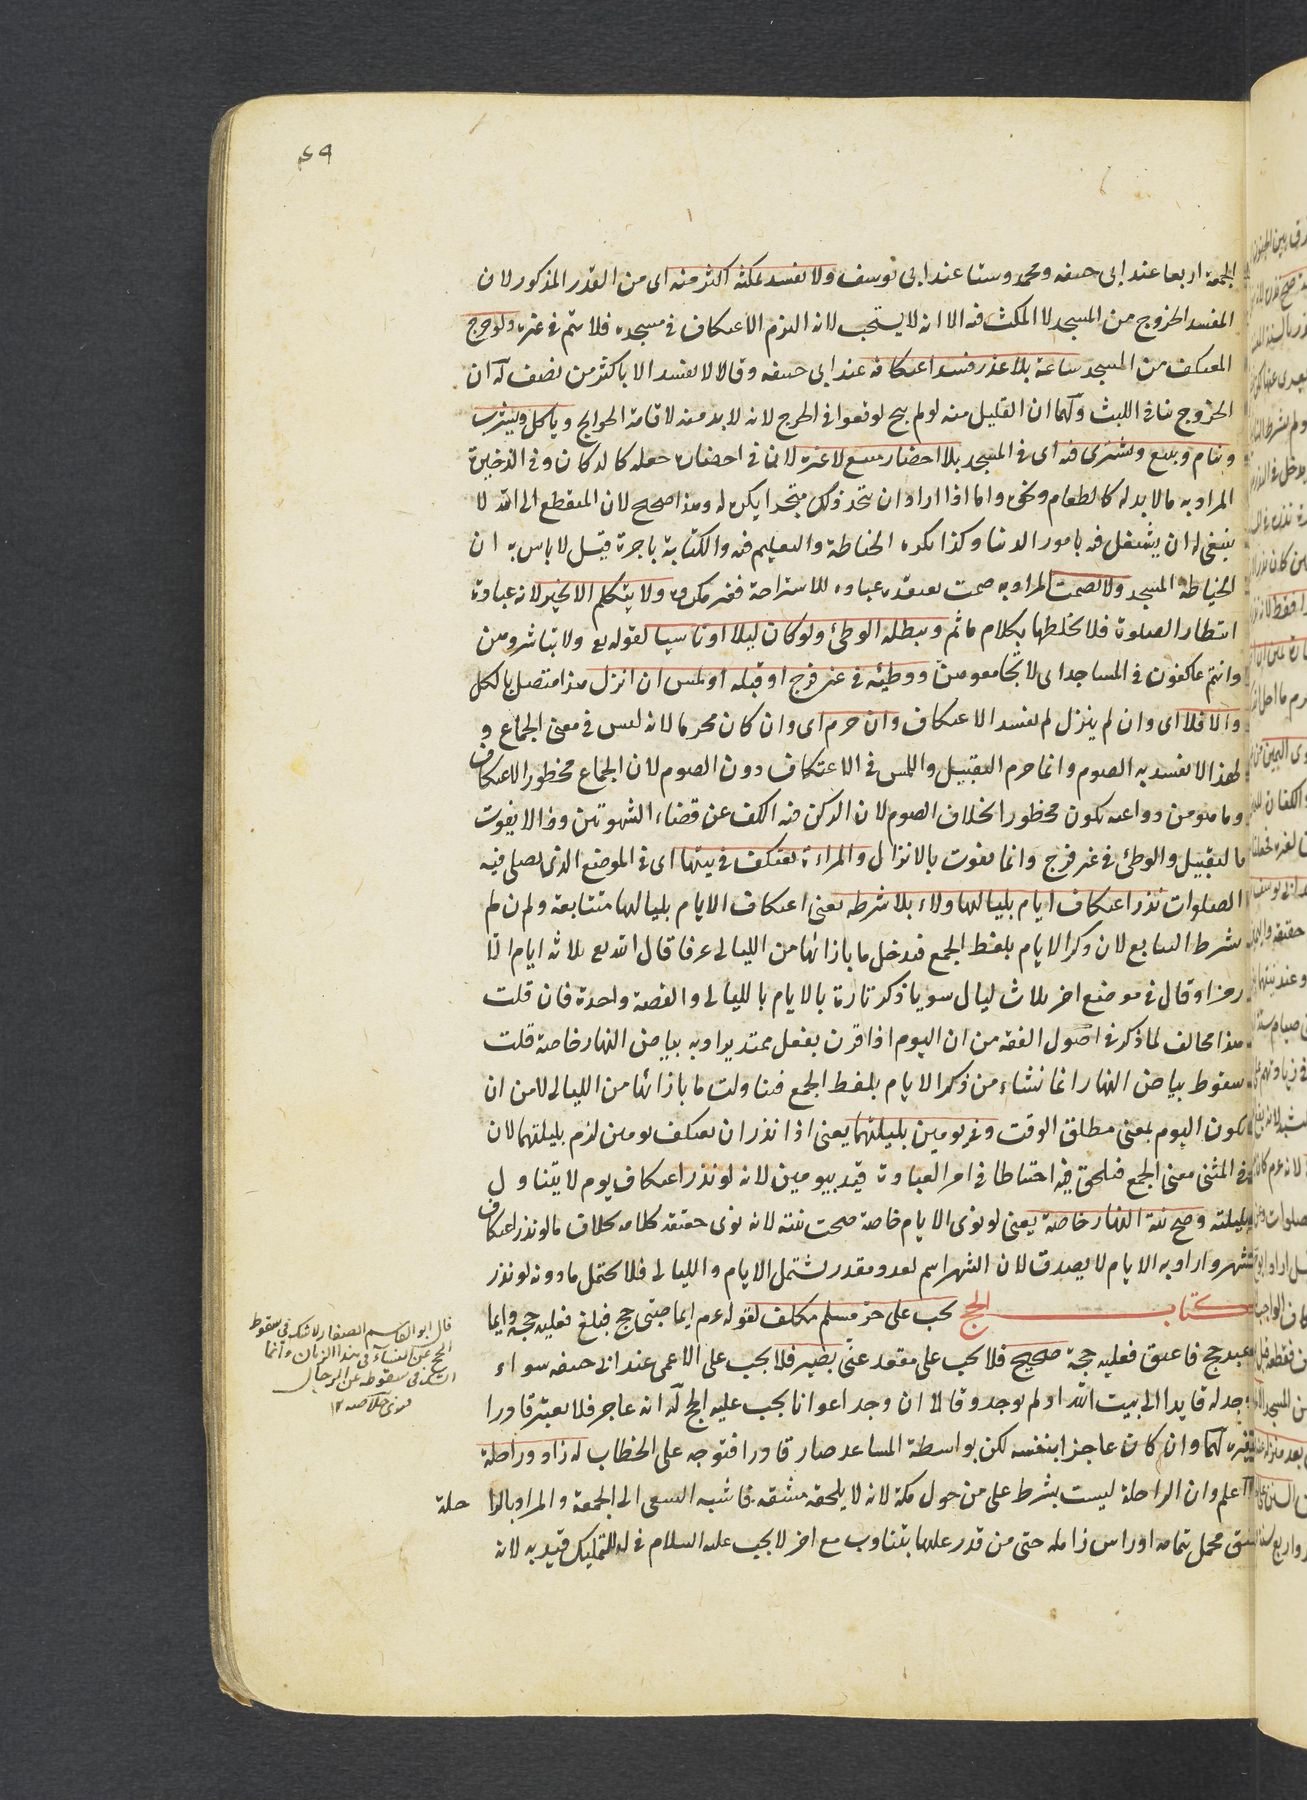 الجمعة اربعا عند ابى حنيفه ومحمد وستا عند ابى يوسف ولا يفسد بمكثه اكثر منه اى من القدر المذكور لان
المفسد الخروج من المسجد لا المكث فيه الا انه لا يستحب لانه التزم الاعتكاف فى مسجده فلا يتم فى غيره ولو خرج
المعتكف من المسجد ساعة بلا عذر فسد اعتكافه عند ابى حنيفه وقالا لا يفسد الا باكثر من نصف له ان
الخروج ينافى اللبث ولهما ان القليل منه لو لم يبح لوقعوا فى الحرج لانه لا بد منه لاقامة الحوايج وياكل ويشرب
وينام ويبيع ويشترى فيه اى فى المسجد بلا احضار مبيع لا غيره لان فى احضاره جعله كالدكان وفى الذخيرة
المراد به ما لا بد له كالطعام ونحوه واما اذا اراد ان يتخذ ذلك متجرا يكره له وهذا صحيح لان المنقطع الى الله لا
ينبغى له ان يشتغل فيه بامور الدنيا وكذا يكره الخياطة والتعليم فيه والكتابة باجرة قيل لا باس به ان
الخياطة المسجد ولا يصمت المراد به صمت يعتقده عباده للاستراحة فغير مكروه ولا يتكلم الا بخير لانه عبادة
انتظار الصلوة فلا يخلطها بكلام ماثم ويبطله الوطئ ولو كان ليلا او ناسيا لقوله تع ولا تباشروهن
وانتم عاكفون فى المساجد اى لا تجامعوهن ووطيئه فى غير فرج او قبله او لمس ان انزل هذا متصل بالكل
والا فلا اى وان لم ينزل لم يفسد الاعتكاف وان حرم اى وان كان محرما لانه ليس فى معنى الجماع و
لهذا لا يفسد به الصوم وانما حرم التقبيل واللمس فى الاعتكاف دون الصوم لان الجماع محظور الاعتكاف
وما هو من دواعيه يكون محظورا بخلاف الصوم لان الركن فيه الكف عن قضاء الشهوتين وذا لا يفوت
بالتقبيل والوطئ فى غير فرج وانما يفوت بالانزال والمراءة تعتكف فى بيتها اى فى الموضع الذى يصلى فيه
الصلوات نذر اعتكاف ايام بلياليها ولاء بلا شرطه يعنى اعتكاف الايام بلياليها متتابعة ولم ان لم
يشرط التتابع لان ذكر الايام بلفظ الجمع فيدخل ما بازائها من الليالى عرفا قال الله تع ثلاثة ايام الا
رمزا وقال فى موضع اخر ثلاث ليال سويا ذكر تارة بالايام بالليالى والقصة واحدة فان قلت
هذا مخالف لما ذكر فى اصول الفقه من ان اليوم اذا قرن بفعل ممتد يراد به بياض النهار خاصة قلت
سقوط بياض النهار انما نشاء من ذكر الايام بلفظ الجمع فتناولت ما بازائها من الليالى لا من ان
يكون اليوم بمعنى مطلق الوقت وفى يومين بليلتهما يعنى اذا نذر ان يعتكف يومين لزم بليلتهما لان
فى المثنى معنى الجمع فيلحق فيه احتياطا فى امر العبادة قيد بيومين لانه لو نذر اعتكاف يوم لا يتناول
بليلته وصح نية النهار خاصة يعنى لو نوى الايام خاصة صحت نيته لانه نوى حقيقة كلامه بخلاف ما لو نذر اعتكاف
شهر واراد به الايام لا يصدق لان الشهر اسم لعدد مقدر يشتمل الايام والليالى فلا يحتمل ما دونه لو نذر
كتاب الحج يجب على حر مسلم مكلف لقوله عم ايما صبى حج فبلغ فعليه حجة وايما
عبد حج فاعتق فعليه حجة صحيح فلا يجب على مقعد غنى بصير فلا يجب على الاعمى عند ابى حنيفه سواء
وجد له قايدا الى بيت الله او لم يوجد وقالا ان وجد اعوانا يجب عليه الحج له انه عاجز فلا يعتبر قادرا
بغيره لهما وان كان عاجزا بنفسه لكن بواسطة المساعد صار قادرا فتوجه على الخطاب له زاد وراحلة
اعلم وان الراحلة ليست بشرط على من حول مكة لانه لا يلحقه مشقه فاشبه السعى الى الجمعة والمراد بالراحلة
شق محمل بتمامه او راس زامله حتى من قدر عليها بتناوب مع اخر لا يجب عليه السلام فى له للتمليك قيد به لانه
قال ابو القاسم الصفار لا شك فى سقوط
الحج عن النساء فى هذا الزمان وانما
الشك فى سقوطه عن الرجال
فتوى خلاصه ١٢